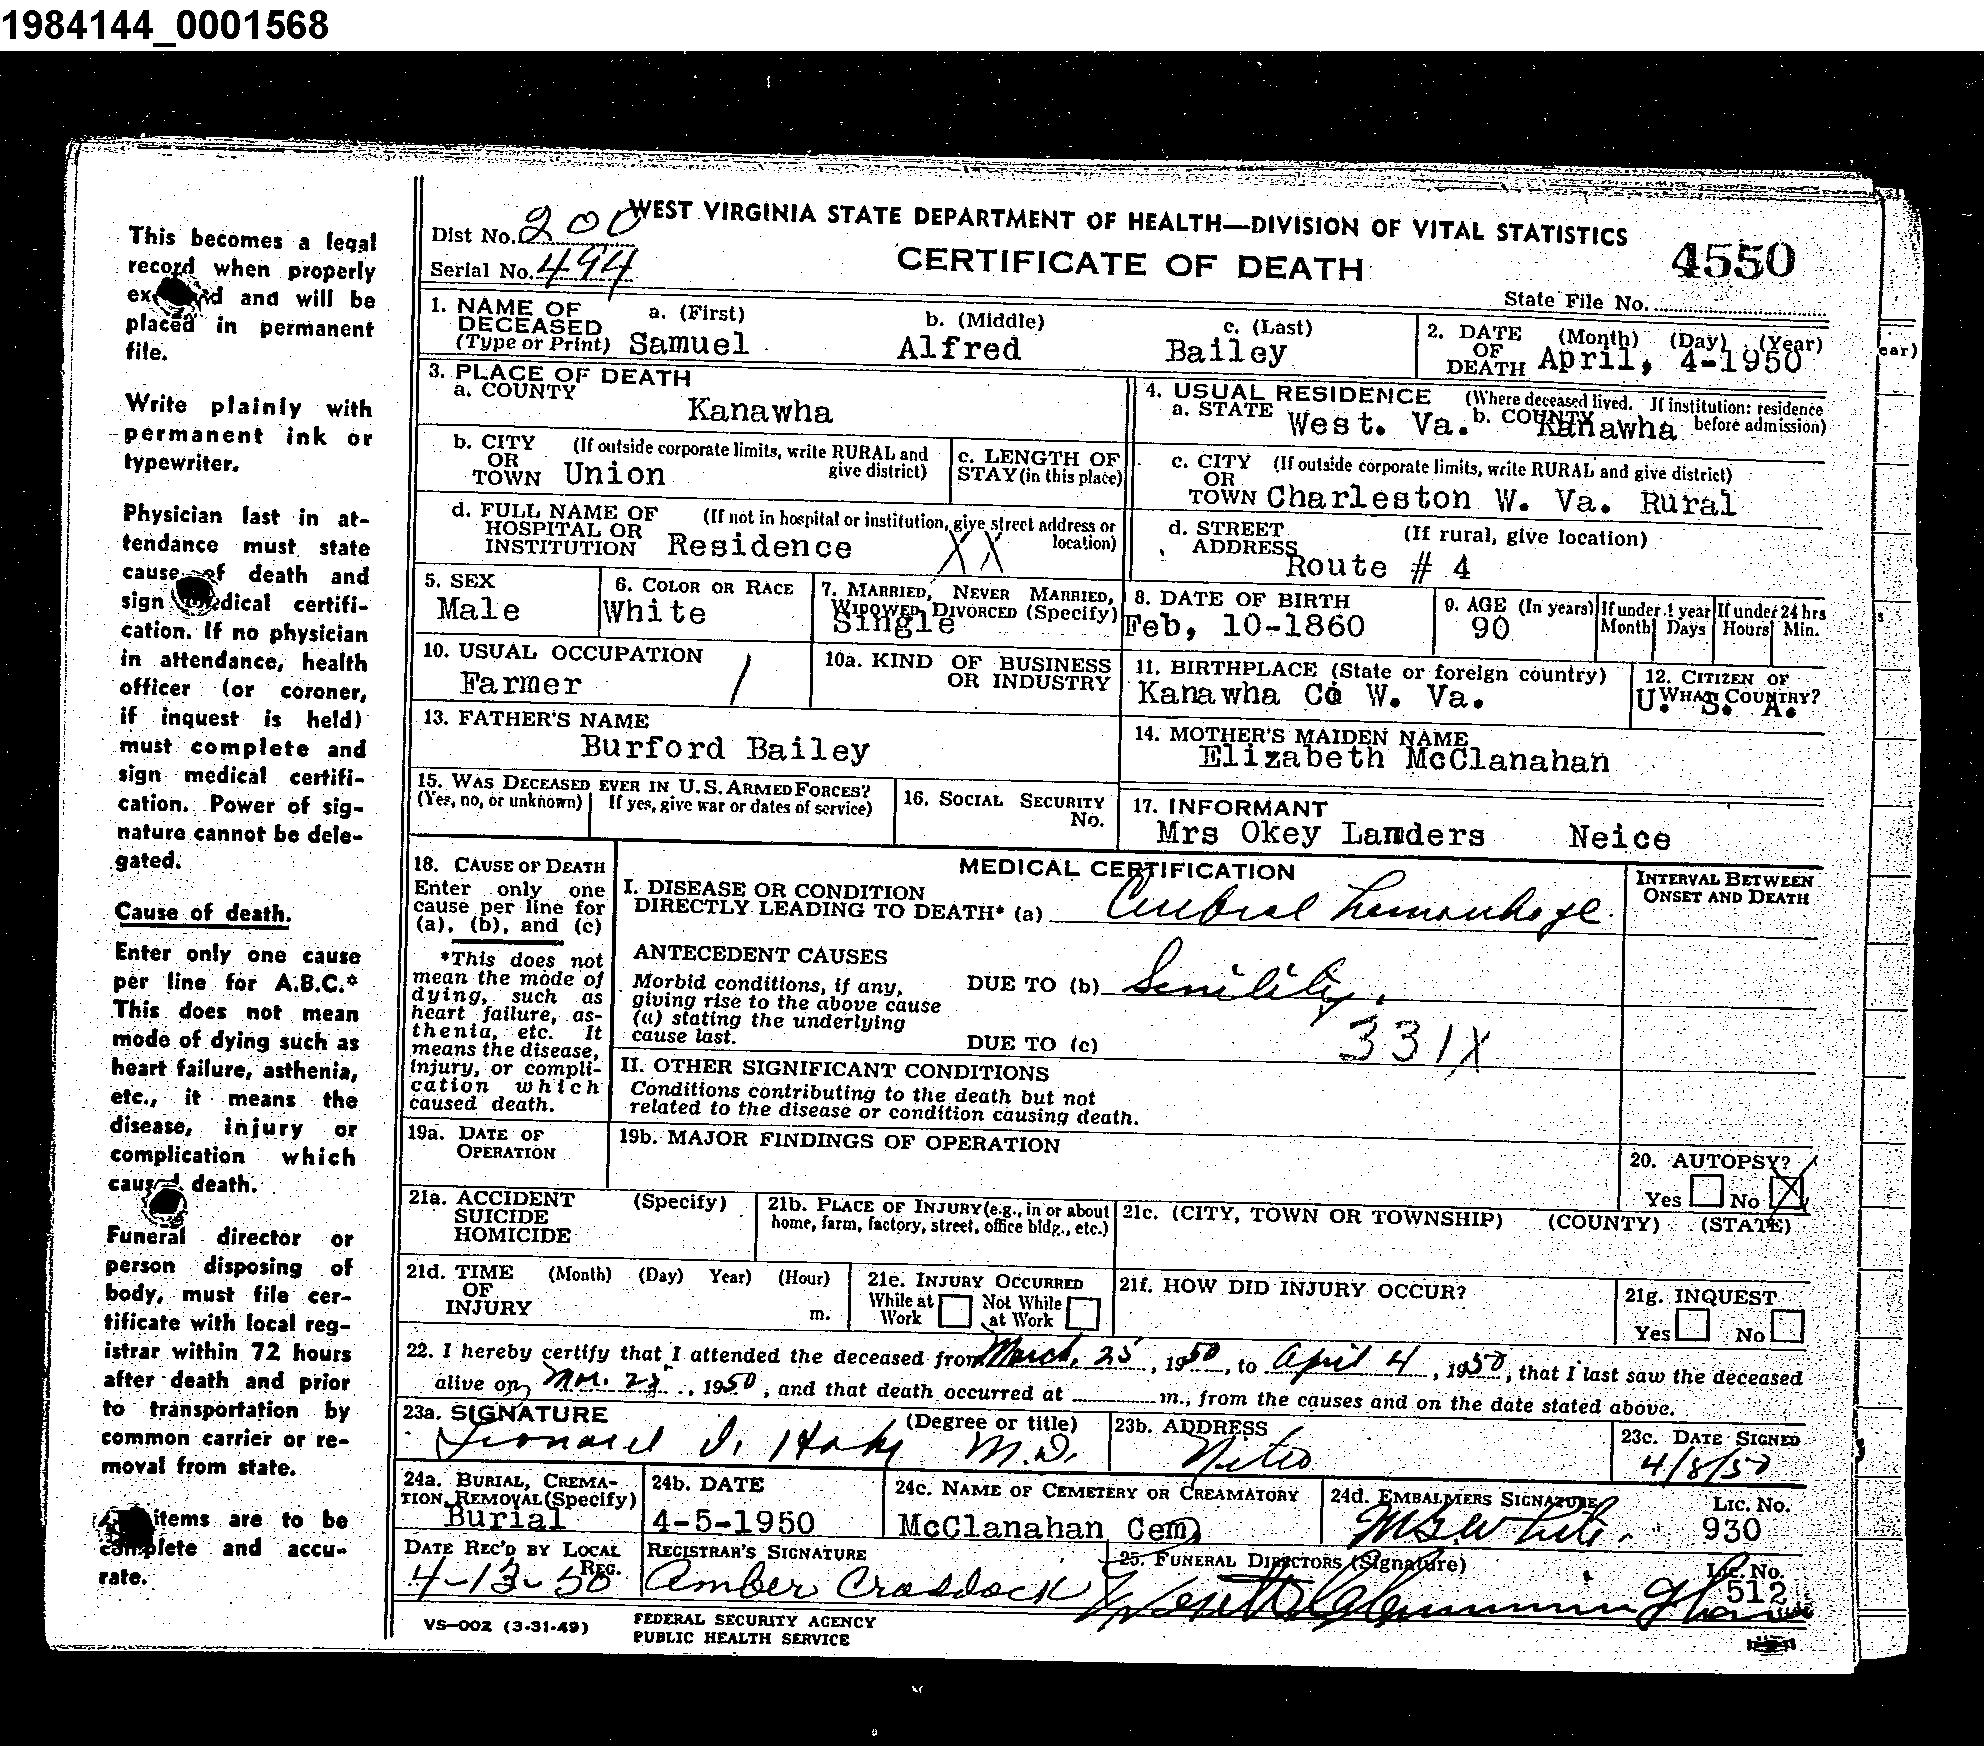 1984144_0001568
This becomes a legal
record when properly
and will be
placed in permanent
file.
Write plainly with
permanent ink or
typewriter.
Physician last in at-
tendance must state
cause of death and
sign medical certifi-
cation. If no physician
in attendance, health
officer (or coroner,
if inquest is held)
must complete and
sign medical certifi-
cation. Power of sig-
nature cannot be dele-
gated.
Cause of death.
Enter only one cause
per line for A.B.C.*
This does not mean
mode of dying such as
heart failure, asthenia,
etc., it means the
disease, injury or
complication which
caused death.
Funeral director or
person disposing of
body, must file cer-
tificate with local reg-
istrar within 72 hours
after death and prior
to transportation by
common carrier or re-
moval from state.
items are to be
complete and accu-
rate.
WEST VIRGINIA STATE DEPARTMENT OF HEALTH—DIVISION OF VITAL STATISTICS
Dist No. 200
Serial No. 494
CERTIFICATE OF DEATH
4550
State File No.
1. NAME OF DECEASED (Type or Print) a. (First) Samuel b. (Middle) Alfred c. (Last) Bailey
2. DATE OF DEATH (Month) (Day) (Year) April, 4-1950
3. PLACE OF DEATH
a. COUNTY Kanawha
4. USUAL RESIDENCE (Where deceased lived. If institution: residence before admission)
a. STATE West. Va. b. COUNTY Kanawha
b. CITY OR TOWN (If outside corporate limits, write RURAL and give district) Union
c. LENGTH OF STAY (in this place)
c. CITY OR TOWN (If outside corporate limits, write RURAL and give district) Charleston W. Va. Rural
d. FULL NAME OF HOSPITAL OR INSTITUTION (If not in hospital or institution, give street address or location) Residence XX
d. STREET ADDRESS (If rural, give location) Route # 4
5. SEX Male
6. COLOR OR RACE White
7. MARRIED, NEVER MARRIED, WIDOWED, DIVORCED (Specify) Single
8. DATE OF BIRTH Feb, 10-1860
9. AGE (In years) 90 If under 1 year Month Days If under 24 hrs Hours Min.
10. USUAL OCCUPATION Farmer /
10a. KIND OF BUSINESS OR INDUSTRY
11. BIRTHPLACE (State or foreign country) Kanawha Co W. Va.
12. CITIZEN OF WHAT COUNTRY? U. S. A.
13. FATHER'S NAME Burford Bailey
14. MOTHER'S MAIDEN NAME Elizabeth McClanahan
15. WAS DECEASED EVER IN U.S. ARMED FORCES? (Yes, no, or unknown) If yes, give war or dates of service)
16. SOCIAL SECURITY No.
17. INFORMANT Mrs Okey Landers Neice
18. CAUSE OF DEATH
Enter only one
cause per line for
(a), (b), and (c)
*This does not
mean the mode of
dying, such as
heart failure, as-
thenia, etc. It
means the disease,
injury, or compli-
cation which
caused death.
MEDICAL CERTIFICATION
INTERVAL BETWEEN ONSET AND DEATH
I. DISEASE OR CONDITION
DIRECTLY LEADING TO DEATH* (a) Cerebral hemorrhage
ANTECEDENT CAUSES
Morbid conditions, if any,
giving rise to the above cause
(a) stating the underlying
cause last.
DUE TO (b) Senility.
DUE TO (c) 331X
II. OTHER SIGNIFICANT CONDITIONS
Conditions contributing to the death but not
related to the disease or condition causing death.
19a. DATE OF OPERATION
19b. MAJOR FINDINGS OF OPERATION
20. AUTOPSY? Yes No X
21a. ACCIDENT SUICIDE HOMICIDE (Specify)
21b. PLACE OF INJURY (e.g., in or about home, farm, factory, street, office bldg., etc.)
21c. (CITY, TOWN OR TOWNSHIP) (COUNTY) (STATE)
21d. TIME OF INJURY (Month) (Day) Year) (Hour) m.
21e. INJURY OCCURRED While at Work Not While at Work
21f. HOW DID INJURY OCCUR?
21g. INQUEST Yes No
22. I hereby certify that I attended the deceased from March, 25, 1950, to April 4, 1950, that I last saw the deceased
alive on Mar. 25, 1950, and that death occurred at m., from the causes and on the date stated above.
23a. SIGNATURE (Degree or title) Leonard M.D.
23b. ADDRESS Nitro
23c. DATE SIGNED 4/8/50
24a. BURIAL, CREMATION, REMOVAL (Specify) Burial
24b. DATE 4-5-1950
24c. NAME OF CEMETERY OR CREAMATORY McClanahan Cem
24d. EMBALMERS SIGNATURE White. LIC. No. 930
DATE REC'D BY LOCAL REG. 4-13-50
REGISTRAR'S SIGNATURE Amber Craddock
25. FUNERAL DIRECTORS (Signature) Lic. No. 512
VS-002 (3-31-49)
FEDERAL SECURITY AGENCY
PUBLIC HEALTH SERVICE